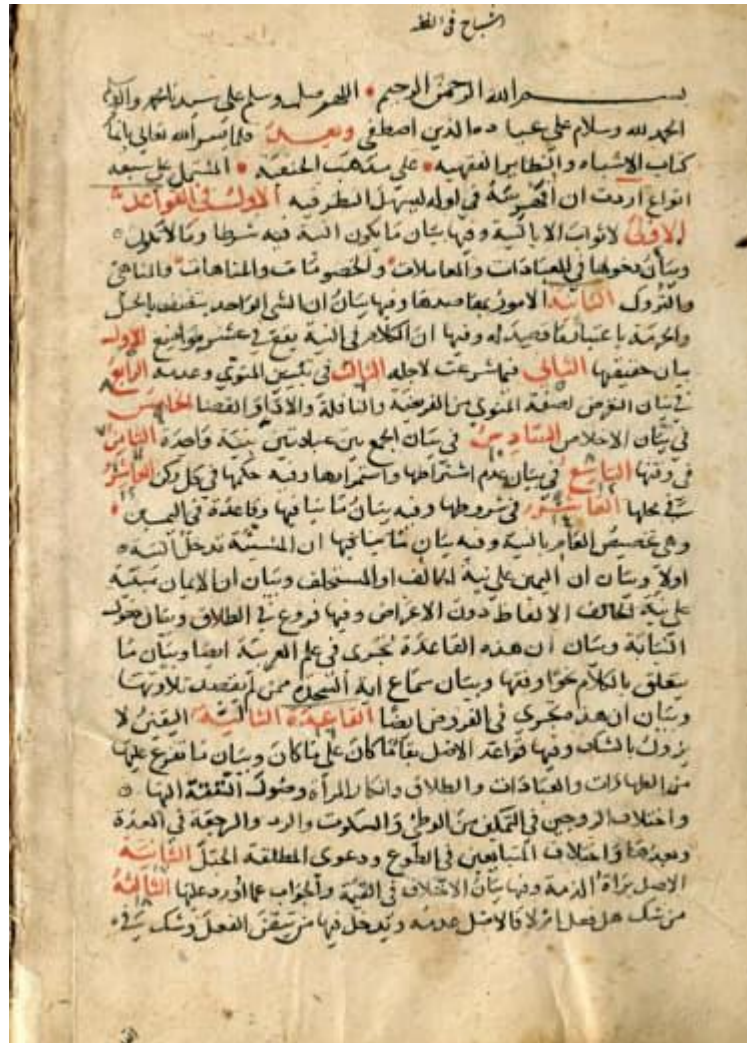 اشباح في الفقه
بسم الله الرحمن الرحيم • اللهم صل وسلم على سيدنا محمد واله
الحمد لله وسلام على عباده الذين اصطفى وبعد فلما يسر الله تعالى باتمام
كتاب الاشباه والنظاير الفقهيه • على مذهب الحنفية • المشتمل على سبعة
انواع اردت ان افهرسه في اوله ليسهل النظر فيه الاول في القواعد
الاولى لا ثواب الا بالنية وفيها بيان ما يكون النية فيه شرطا وما لا تكون
وبيان دخولها في العبادات والمعاملات والخصومات والمباحات والمناهي
والتروك الثانية الامور بمقاصدها وفيها بيان ان الشي الواحد يتصف بالحل
والحرمة باعتبار ما قصد له وفيها ان الكلام في النية يقع في عشر مواضع الاول
بيان حقيقتها الثاني فيما شرعت لاجله الثالث في تعيين المنوي وعدمه الرابع
في بيان التعرض لصفة المنوي من الفريضة والنافلة والاداء والقضا الخامس
في بيان الاخلاص السادس في بيان الجمع بين عبادتين بنية واحدة الثامن
في وقتها التاسع في بيان عدم اشتراطها واستمرارها وفيه حكمها في كل ركن العاشر
في محلها العاشر في شروطها وفيه بيان ما ينافيها وقاعدة في اليمين
وهي تخصيص العام بالنية وفيه بيان ما ينافيها ان المشيئة تدخل النية
اولا وبيان ان اليمين على نية الحالف او المستحلف وبيان ان الايمان مبنية
على نية الحالف الالفاظ دون الاغراض وفيها فروع في الطلاق وبيان دخول
النيابة وبيان ان هذه القاعدة تجري في علم العربية ايضا وبيان ما
يتعلق بالكلام نحوا وفقها وبيان سماع اية السجدة ممن لم يقصد تلاوتها
وبيان ان هذه تجري في العروض ايضا القاعدة الثالثة اليقين لا
يزول بالشك وفيها قواعد الاصل بقا ما كان على ما كان وبيان ما تفرع عليها
من الطهارات والعبادات والطلاق وانكار المرأة وصول النفقة اليها
واختلاف الزوجين في التمكين من الوطئ والسكوت والرد والرجعة في العدة
وبعدها واختلاف المتبايعين في الطوع ودعوى المطلقة الحبل الثانية
الاصل براة الذمة وفيها بيان الاختلاف في القيمة والجواب عما اورد عليها الثالثة
من شك هل فعل ام لا فالاصل عدمه ويدخل فيها من تيقن الفعل وشك في